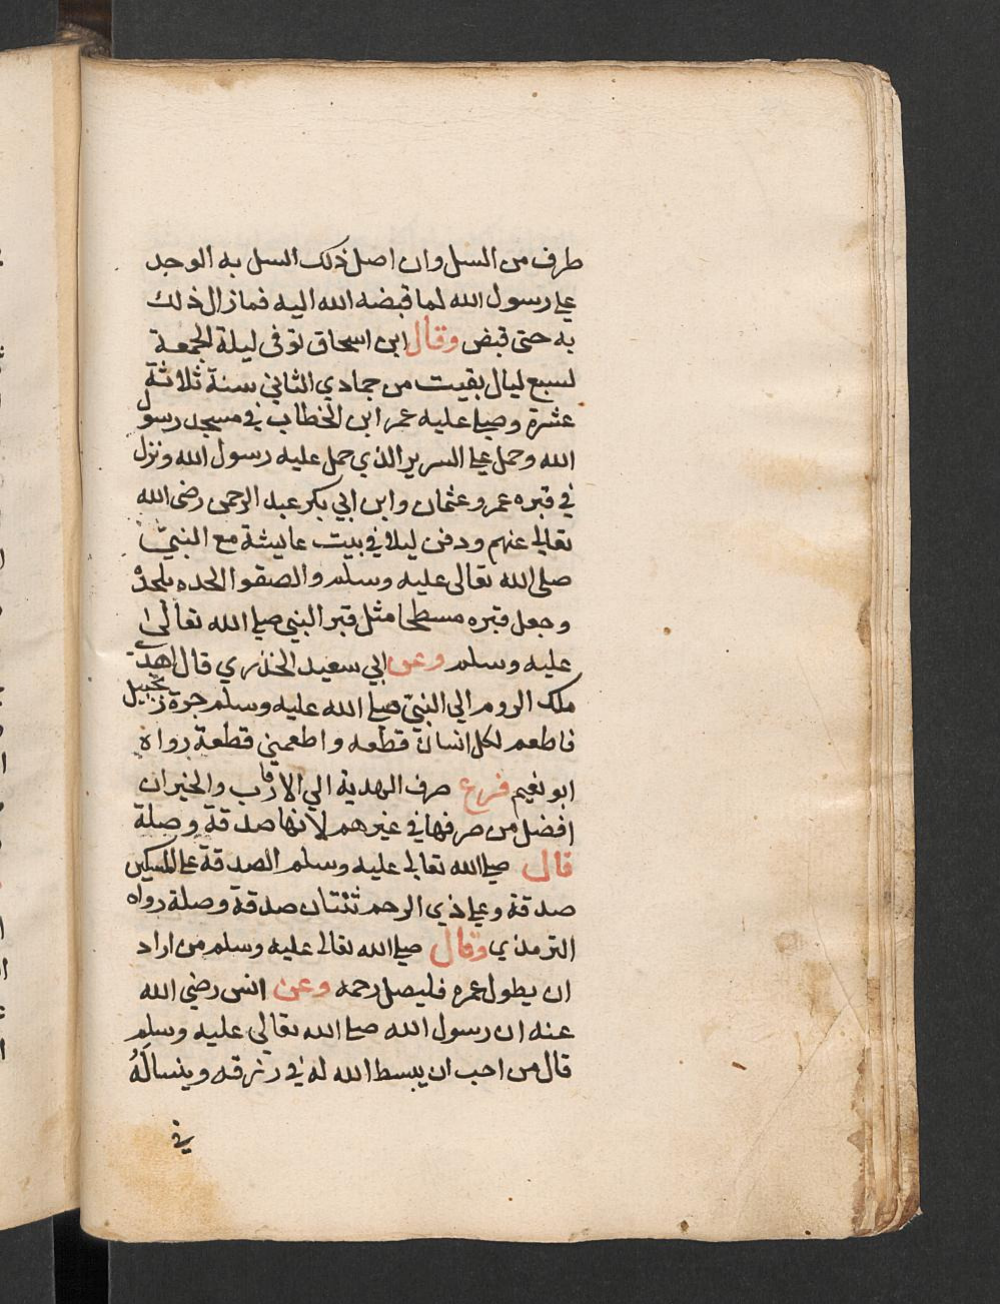 طرف من السل وان اصل ذلك السل به الوجد
على رسول الله لما قبضه الله اليه فمازال ذلك
به حتى قبض وقال ابن اسحاق توفى ليلة الجمعة
لسبع ليال بقيت من جمادي الثاني سنة ثلاثة
عشرة وصلى عليه عمر ابن الخطاب في مسجد رسول
الله وحمل على السرير الذي حمل عليه رسول الله ونزل
في قبره عمر وعثمان وابن ابي بكر عبد الرحمن رضى الله
تعالى عنهم ودفن ليلا في بيت عايشة مع النبي
صلى الله تعالى عليه وسلم والصقوا لحده بلحده
وجعل قبره مسطحا مثل قبر النبي صلى الله تعالى
عليه وسلم وعن ابي سعيد الخذري قال اهدى
ملك الروم الي النبي صلى الله عليه وسلم جرة زنجبيل
فاطعم لكل انسان قطعه واطعمني قطعة رواه
ابو نعيم فرع صرف الهدية الي الاقارب والجيران
افضل من صرفها في غيرهم لانها صدقة وصلة
قال صلى الله تعالى عليه وسلم الصدقة على المسكين
صدقة وعلى ذي الرحم ثنتان صدقة وصلة رواه
الترمذي وقال صلى الله تعالى عليه وسلم من اراد
ان يطول عمره فليصل رحمه وعن انس رضي الله
عنه ان رسول الله صلى الله تعالى عليه وسلم
قال من احب ان يبسط الله له في رزقه وينسا له
في